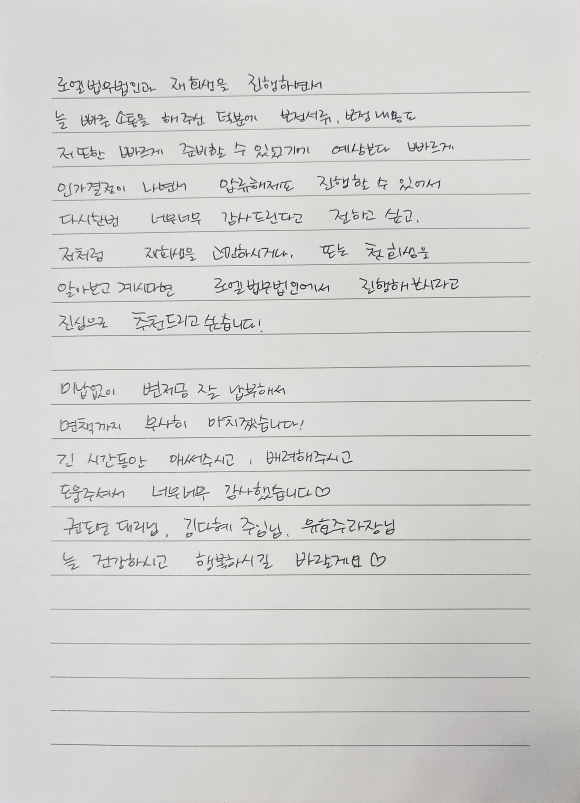 로엘법무법인과 재회생을 진행하면서
늘 빠른 소통을 해주신 덕분에 보정서류, 보정내용도
저또한 빠르게 준비할 수 있었기에 예상보다 빠르게
인가결정이 나면서 압류해제도 진행할 수 있어서
다시한번 너무너무 감사드린다고 전하고 싶고,
저처럼 재회생을 고민하시거나, 또는 첫 회생을
알아보고 계시다면 로엘법무법인에서 진행해보시라고
진심으로 추천드리고싶습니다!
미납없이 변제금 잘 납부해서
면책까지 무사히 마치겠습니다!
긴 시간동안 애써주시고, 배려해주시고
도움주셔서 너무너무 감사했습니다♡
권도연 대리님, 김다혜 주임님, 유효주과장님
늘 건강하시고 행복하시길 바랄게요♡